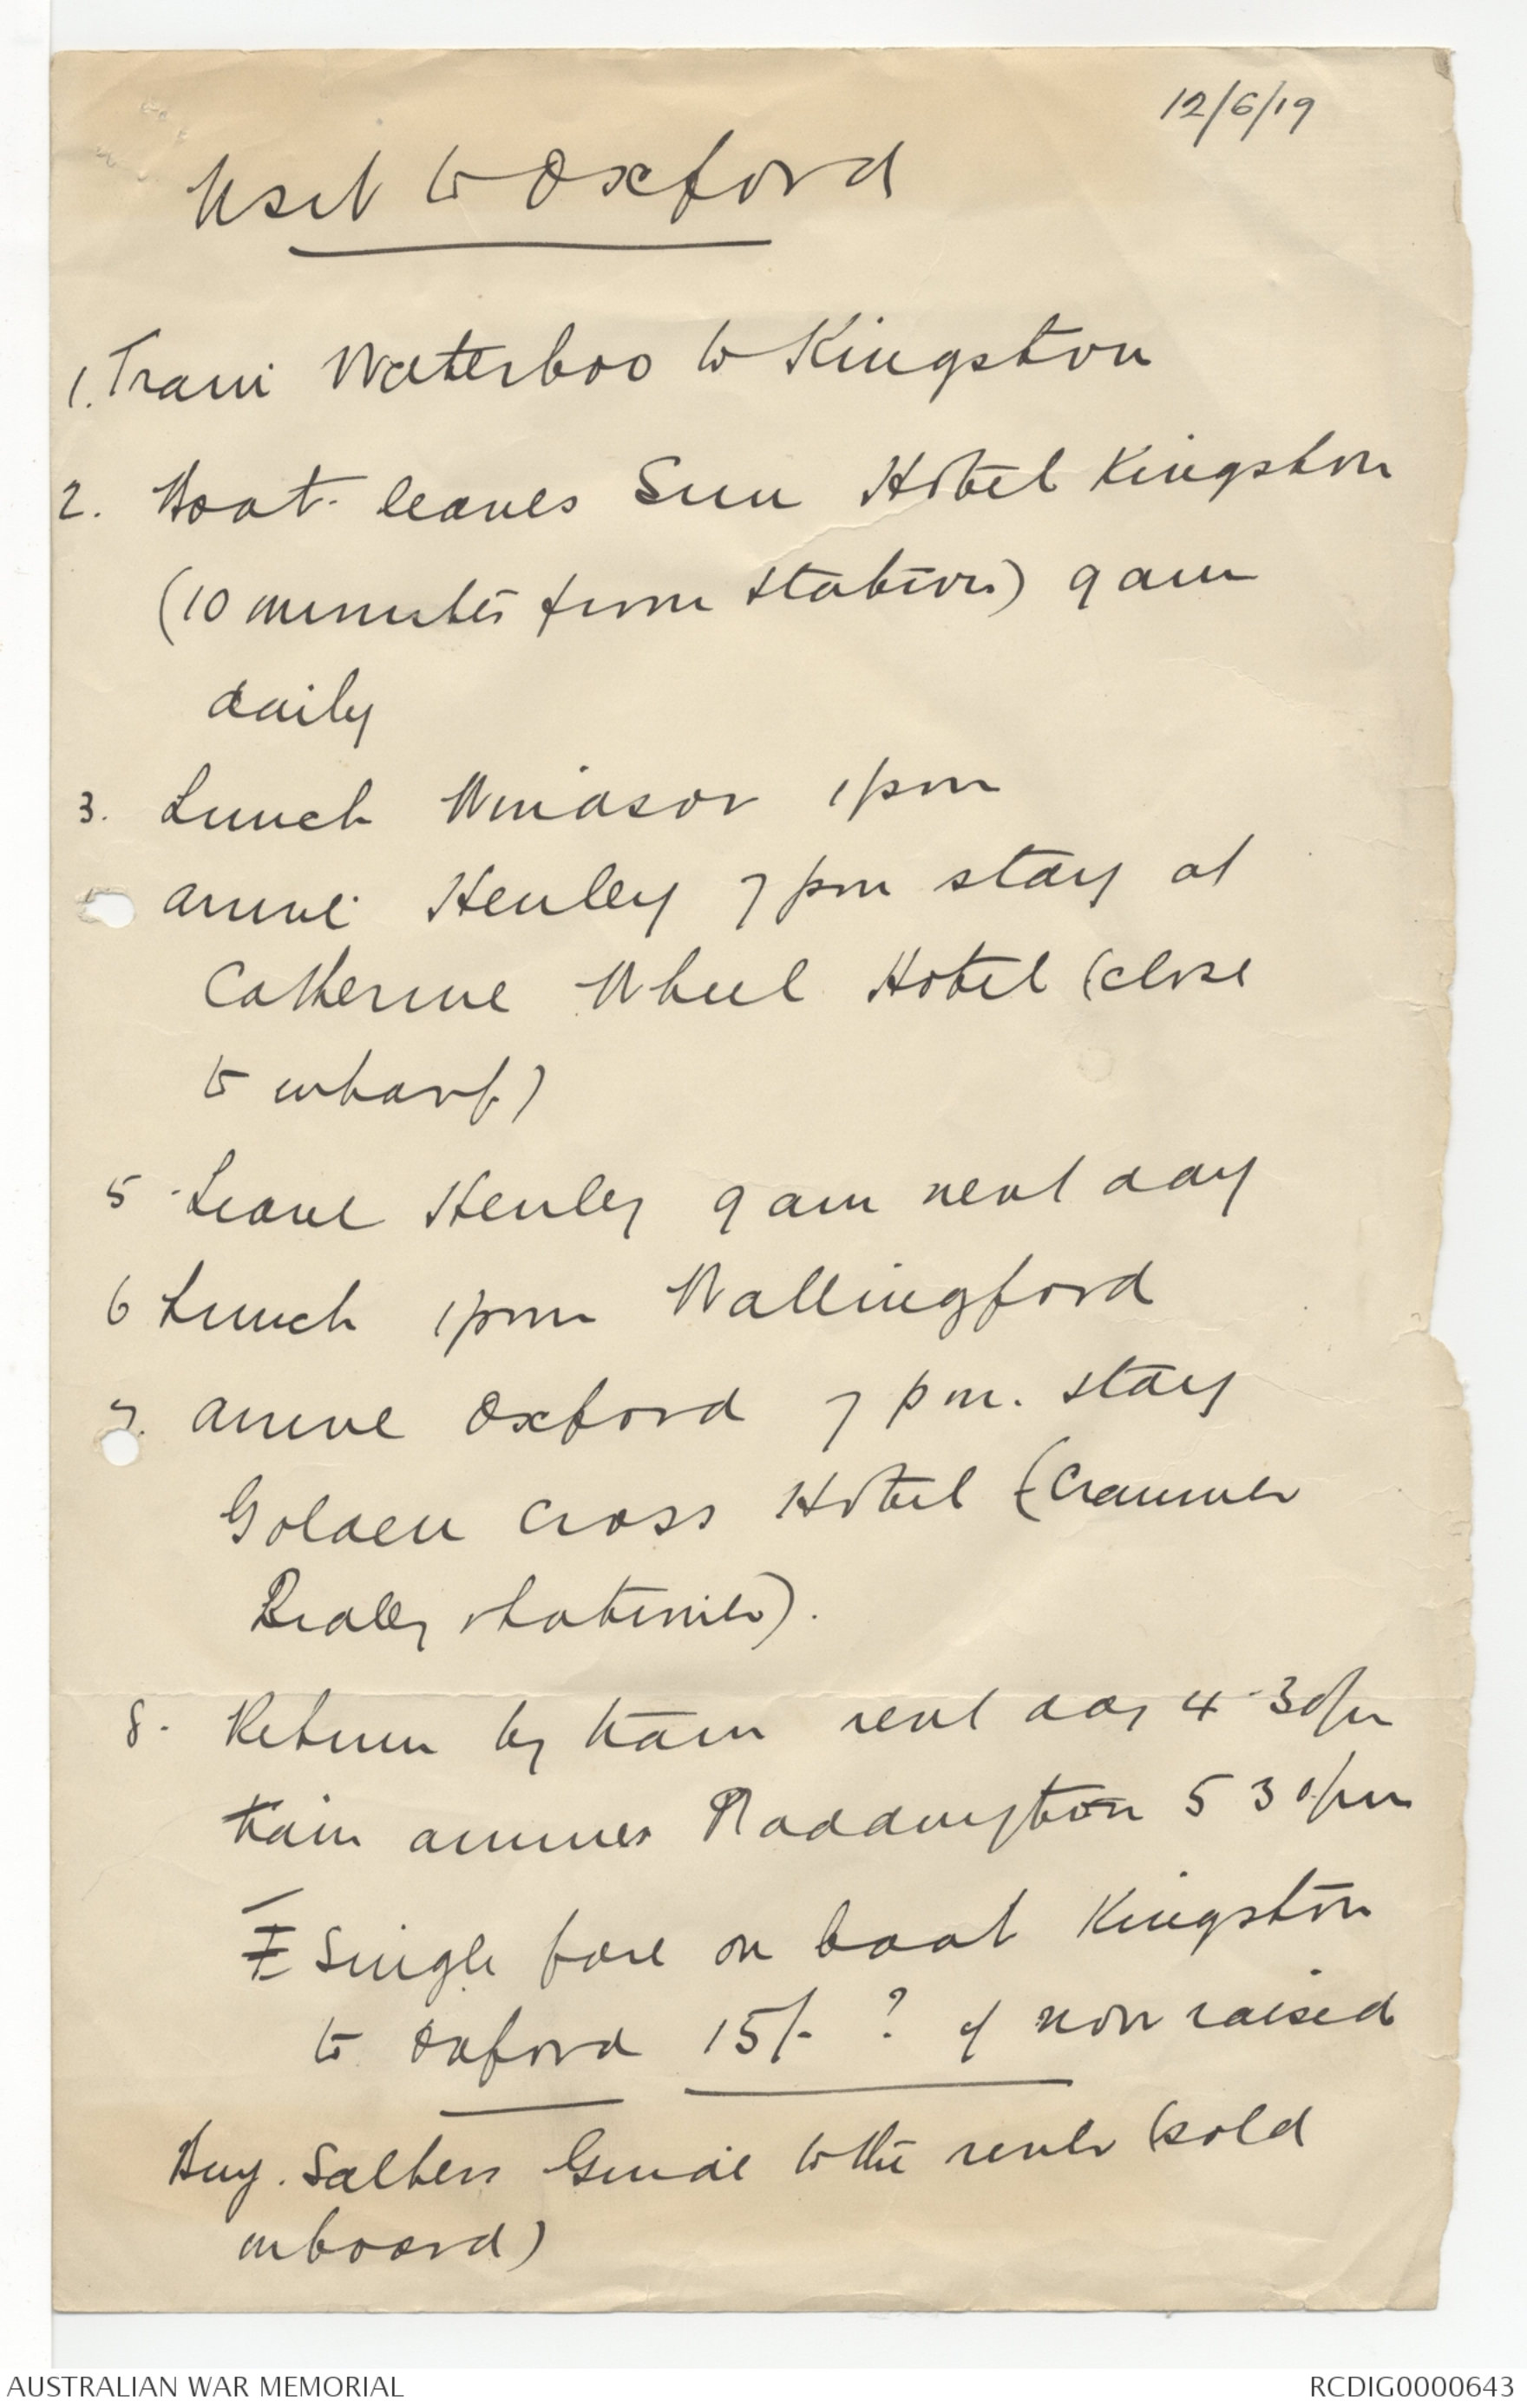 12/6/19
Visit to Oxford
1. Train Waterloo to Kingston
2. Boat leaves Sun Hotel Kingston
(10 minutes from station) 9 am
daily
3. Lunch Windsor 1pm
arrive Henley 7 pm stay at
Catherine Wheel Hotel (close
to wharf)
5 Leave Henley 9 am next day
6 Lunch 1pm Wallingford
7. arrive Oxford 7 pm. stay
Golden Cross Hotel (Cranmer
Ridley & Latimer).
8. Return by train next day 4.30pm
train arrives Paddington 5 30pm
Single fare on boat Kingston
to Oxford 15/- ? if now raised
Buy Salters Guide to the river (sold
on board)
AUSTRALIAN WAR MEMORIAL
RCDIG0000643